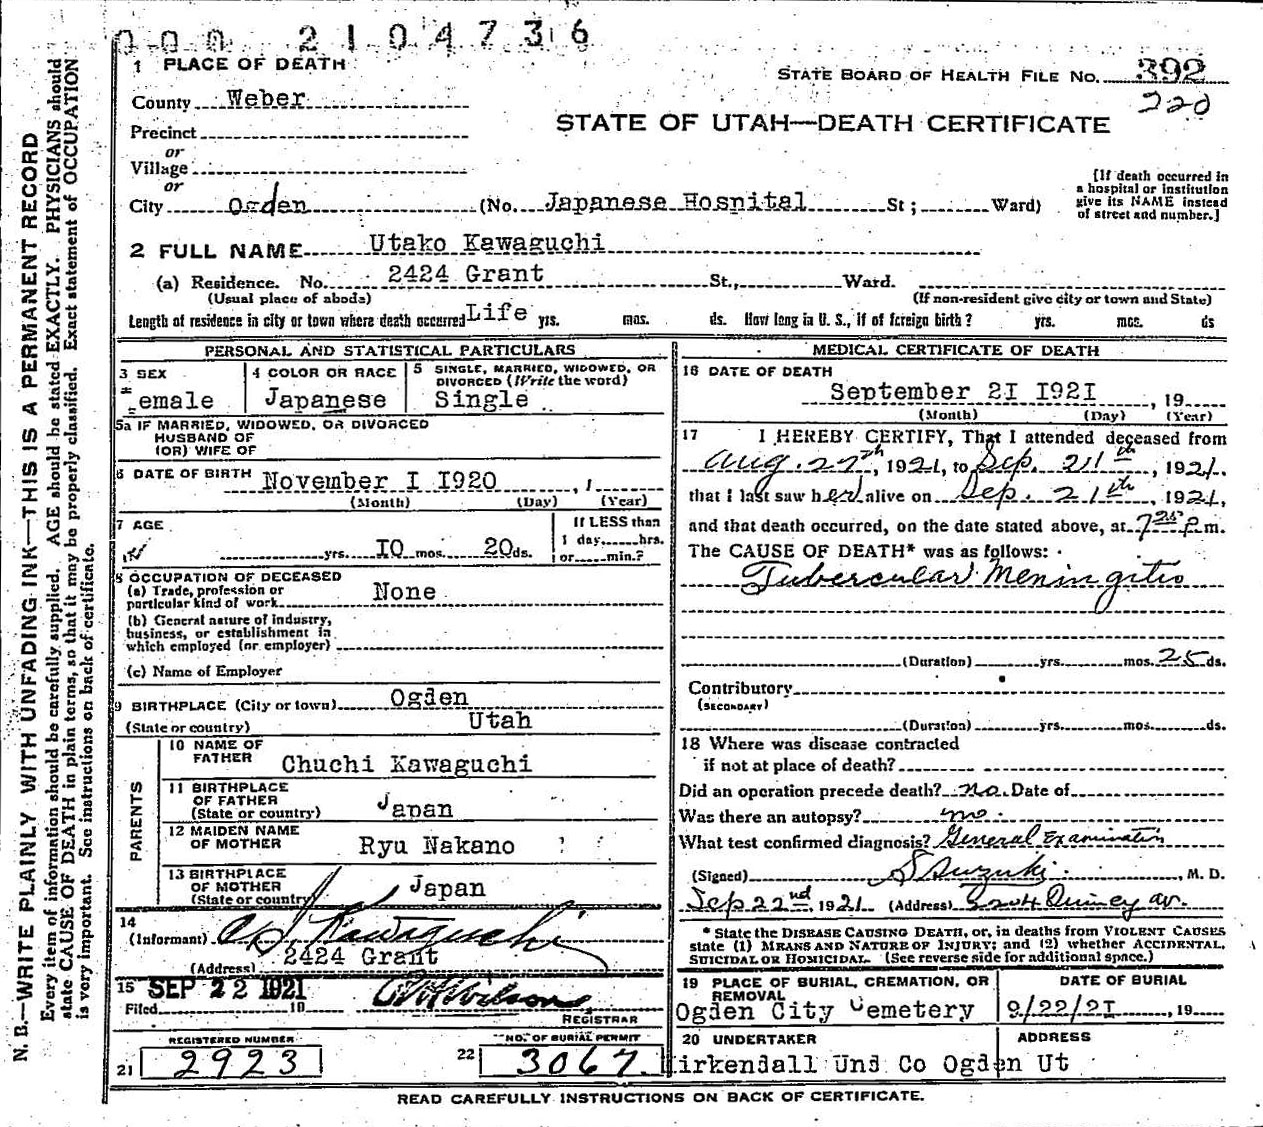 000 2104736
1 PLACE OF DEATH
STATE BOARD OF HEALTH FILE NO. 392
220
County Weber
STATE OF UTAH—DEATH CERTIFICATE
Precinct
or
Village
or
City Ogden (No. Japanese Hospital St; Ward)
[If death occurred in
a hospital or institution
give its NAME instead
of street and number.]
2 FULL NAME Utako Kawaguchi
(a) Residence. No. 2424 Grant St., Ward.
(Usual place of abode) (If non-resident give city or town and State)
Length of residence in city or town where death occurred Life yrs. mos. ds. How long in U. S., if of foreign birth? yrs. mos. ds
PERSONAL AND STATISTICAL PARTICULARS
3 SEX
Female
4 COLOR OR RACE
Japanese
5 SINGLE, MARRIED, WIDOWED, OR
DIVORCED (Write the word)
Single
5a IF MARRIED, WIDOWED, OR DIVORCED
HUSBAND OF
(OR) WIFE OF
6 DATE OF BIRTH November I I920
(Month) (Day) (Year)
7 AGE
yrs. IO mos. 20 ds.
If LESS than
1 day, hrs.
or min.?
8 OCCUPATION OF DECEASED
(a) Trade, profession or
particular kind of work None
(b) General nature of industry,
business, or establishment in
which employed (or employer)
(c) Name of Employer
9 BIRTHPLACE (City or town) Ogden
(State or country) Utah
PARENTS
10 NAME OF
FATHER Chuchi Kawaguchi
11 BIRTHPLACE
OF FATHER
(State or country) Japan
12 MAIDEN NAME
OF MOTHER Ryu Nakano
13 BIRTHPLACE
OF MOTHER
(State or country) Japan
14
(Informant) Kawaguchi
(Address) 2424 Grant
15 SEP 22 1921
Filed 19 Wilson
REGISTRAR
REGISTERED NUMBER
21 2923
NO. OF BURIAL PERMIT
22 3067
MEDICAL CERTIFICATE OF DEATH
16 DATE OF DEATH
September 2I I92I, 19
(Month) (Day) (Year)
17 I HEREBY CERTIFY, That I attended deceased from
Aug. 27th, 1921, to Sep. 21th, 1921.
that I last saw her alive on Sep. 21th, 1921,
and that death occurred, on the date stated above, at 7 25 p.m.
The CAUSE OF DEATH* was as follows:
Tubercular Meningitis
(Duration) yrs. mos. 25 ds.
Contributory
(SECONDARY)
(Duration) yrs. mos. ds.
18 Where was disease contracted
if not at place of death?
Did an operation precede death? no. Date of
Was there an autopsy? no.
What test confirmed diagnosis? General Examination
(Signed) S Suzuki, M. D.
Sep 22nd, 1921 (Address) Quincy av.
* State the DISEASE CAUSING DEATH, or, in deaths from VIOLENT CAUSES
state (1) MEANS AND NATURE OF INJURY; and (2) whether ACCIDENTAL,
SUICIDAL OR HOMICIDAL. (See reverse side for additional space.)
19 PLACE OF BURIAL, CREMATION, OR
REMOVAL
Ogden City Cemetery
DATE OF BURIAL
9/22/2I, 19
20 UNDERTAKER ADDRESS
Kirkendall Und Co Ogden Ut
READ CAREFULLY INSTRUCTIONS ON BACK OF CERTIFICATE.
N. B.—WRITE PLAINLY WITH UNFADING INK—THIS IS A PERMANENT RECORD
Every item of information should be carefully supplied. AGE should be stated EXACTLY. PHYSICIANS should
state CAUSE OF DEATH in plain terms, so that it may be properly classified. Exact statement of OCCUPATION
is very important. See instructions on back of certificate.